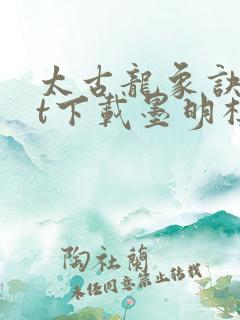 太古龍象訣
t下載墨明棋
陶社蘭
未经同意禁止转载